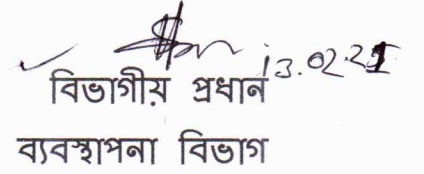 13.02.25
বিভাগীয় প্রধান
ব্যবস্থাপনা বিভাগ